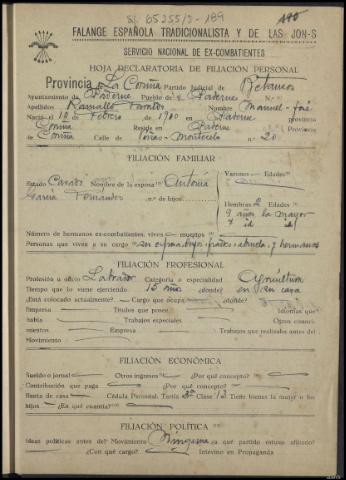 SI 65255/3-189
180
FALANGE ESPAÑOLA TRADICIONALISTA Y DE LAS JON-S
SERVICIO NACIONAL DE EX-COMBATIENTES
HOJA DECLARATORIA DE FILIACIÓN PERSONAL
Provincia de La Coruña Partido Judicial de Betanzos
Ayuntamiento de Paderne Pueblo de Paderne
Apellidos Nombre Manuel-José
Nació el 10 de Febrero de 1900 en Paderne provincia
Coruña Reside en Paderne Provincia
de Coruña Calle de n.º 20
FILIACIÓN FAMILIAR
Estado Casado Nombre de la esposa Antonia Varones Edades
García Fernandez n.º de hijos
Hembras 2 Edades
9 años la mayor
7 id
Número de hermanos ex-combatientes, vivos muertos
Personas que viven a su cargo su esposa, hijos, padres, abuela, y hermanos
FILIACIÓN PROFESIONAL
Profesión u oficio Labrador Categoría o especialidad Agricultura
Tiempo que lo viene ejerciendo 15 años ¿dónde? en su casa
¿Está colocado actualmente? Cargo que ocupa ¿dónde?
Empresa Títulos que posee Idiomas que
habla Trabajos especiales Otros conoci-
mientos Empresa Trabajos realizados antes del
Movimiento
FILIACIÓN ECONÓMICA
Sueldo o jornal Otros ingresos ¿Por qué concepto?
Contribución que paga ¿Por qué concepto?
Renta de casa Cédula Personal: Tarifa 3ª Clase 13 Tiene bienes la mujer o los
hijos ¿En qué cuantía?
FILIACIÓN POLÍTICA
Ideas políticas antes del Movimiento Ninguna ¿a qué partido estuvo afiliado?
¿Con qué cargo? Intervino en Propaganda